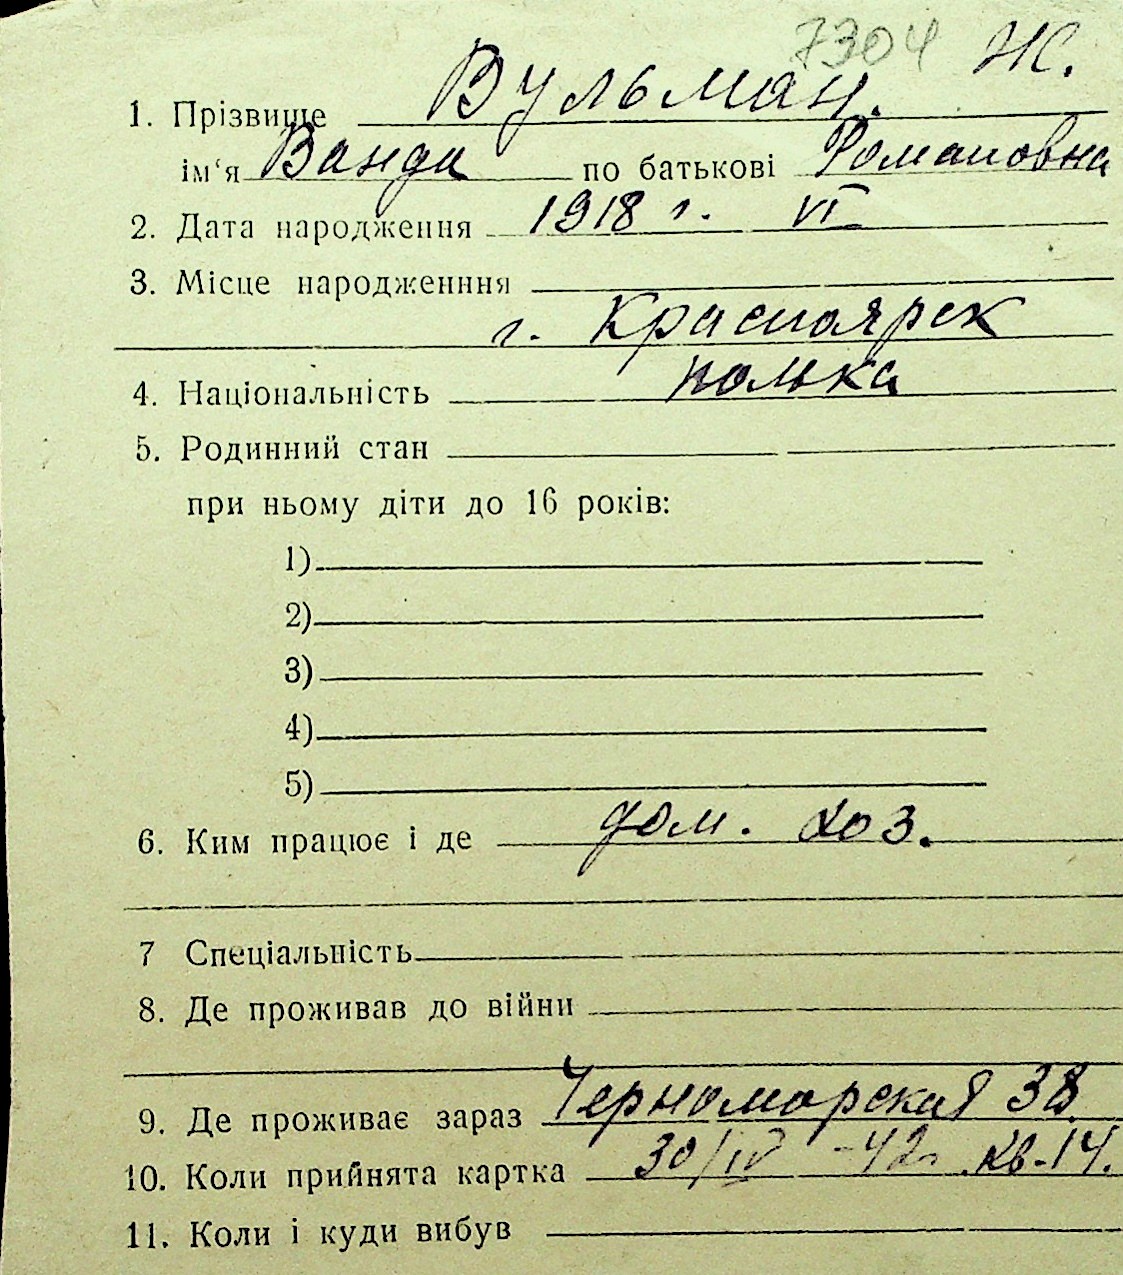 7304 Ж.
1. Прізвище Вульман.
ім‘я Ванда по батькові Романовна
2. Дата народження 1918 г. VI
3. Місце народженння
г. Красноярск
4. Національність полька
5. Родинний стан
при ньому діти до 16 років:
1)
2)
3)
4)
5)
6. Ким працює і де дом. хоз.
7 Спеціальність
8. Де проживав до війни
9. Де проживає зараз Черноморская 38
10. Коли прийнята картка 30/IV -42г. кв. 14.
11. Коли і куди вибув